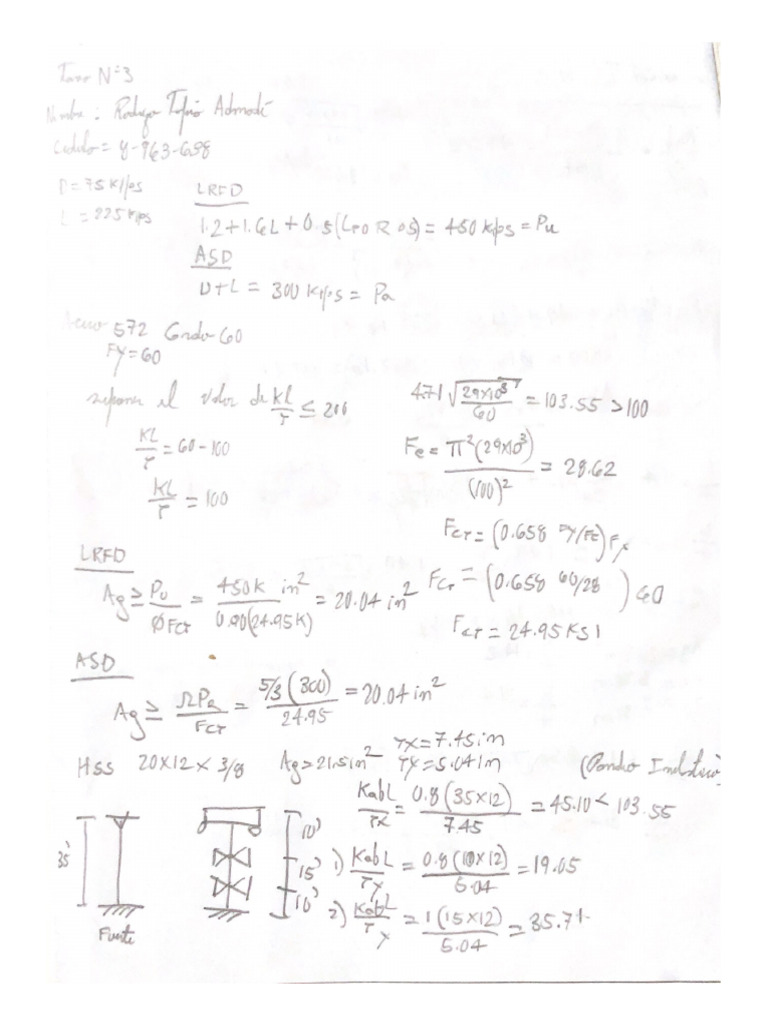 Tarea N°3
Nombre: Rodrigo Tofiño Admadé
Cedula= 4-963-698
D=75 Kips
L=225 Kips
LRFD
1.2+1.6L+0.5(Lr o R o S)=450 kips=Pu
ASD
D+L=300 Kips=Pa
Acero 572 Grado 60
Fy=60
suponer el Valor de kl/r ≤ 200
KL/r = 60-100
KL/r = 100
4.71 √(29x10³/60) = 103.55 > 100
Fe = π²(29x10³)/(100)² = 28.62
Fcr = (0.658 Fy/Fe) Fy
Fcr = (0.658 60/28) 60
Fcr = 24.95 KSI
LRFD
Ag ≥ Pu/ØFcr = 450k in²/0.90(24.95K) = 20.04 in²
ASD
Ag ≥ ΩPa/Fcr = 5/3(300)/24.95 = 20.04 in²
HSS 20x12x3/8 Ag=21.5in² rx=7.45in
ry=5.04in
(Pandeo Inelastico)
KabL/rx = 0.8(35x12)/7.45 = 45.10 < 103.55
1) KabL/ry = 0.8(10x12)/5.04 = 19.05
2) KabL/ry = 1(15x12)/5.04 = 35.71
35'
Fuerte
10'
15'
10'